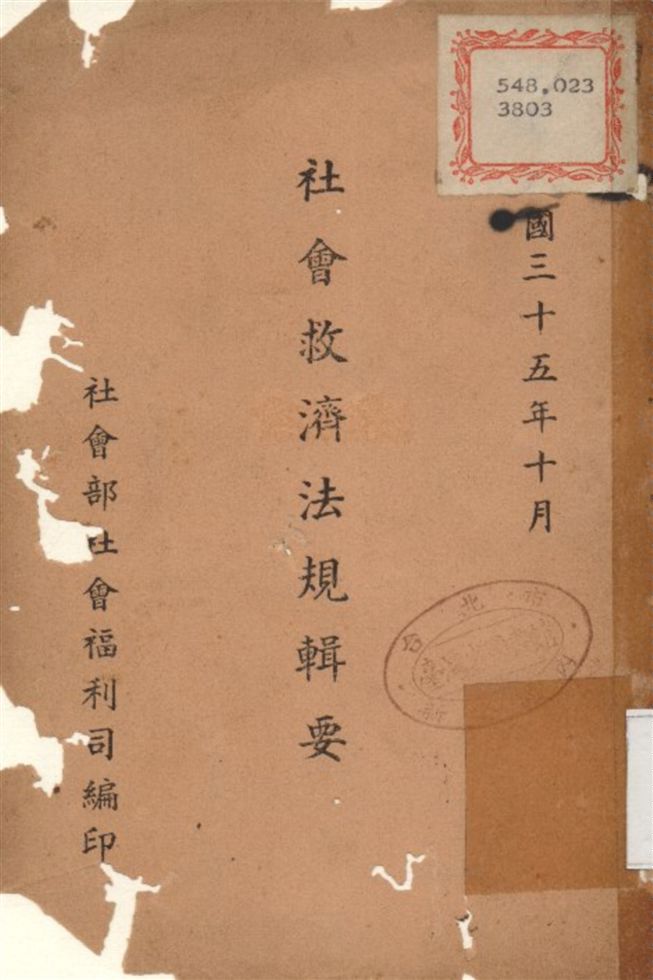 548.023
3803
國三十五年十月
社會救濟法規輯要
社會部社會福利司編印
台北市